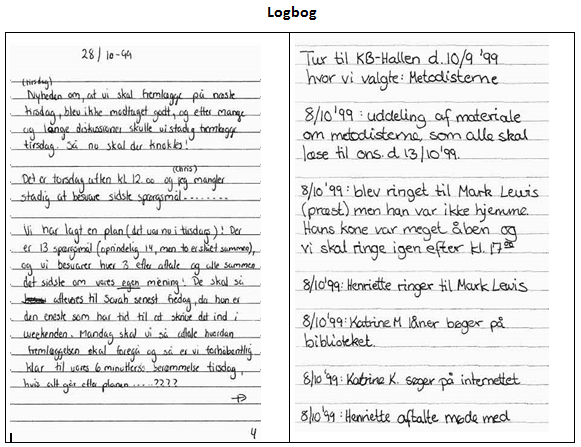 Logbog
28/10-99
(tirsdag)
Nyheden om, at vi skal fremlægge på næste
tirsdag, blev ikke modtaget godt, og efter mange
og lange diskussioner skulle vi stadig fremlægge
tirsdag. Så nu skal der knokles!
(Chris)
Det er torsdag aften kl 12.00 og jeg mangler
stadig at besvare sidste spørgsmål........
Vi har lagt en plan (det var nu i tirsdags)! Der
er 13 spørgsmål (oprindelig 14, men to er slået sammen),
og vi besvarer hver 3 efter aftale og alle sammen
det sidste om vores egen mening! De skal så
afleveres til Sarah senest fredag, da hun er
den eneste som har tid til at skrive det ind i
weekenden. Mandag skal vi så aftale hvordan
fremlæggelsen skal foregå og så er vi forhåbentlig
klar til vores 6 minutters berømmelse tirsdag,
hvis alt går efter planen.....????
4
Tur til KB-Hallen d. 10/9 '99
hvor vi valgte: Metodisterne
8/10 '99: uddeling af materiale
om metodisterne, som alle skal
læse til ons. d 13/10 '99.
8/10 '99: blev ringet til Mark Lewis
(præst) men han var ikke hjemme.
Hans kone var meget åben og
vi skal ringe igen efter kl. 17
8/10 '99: Henriette ringer til Mark Lewis
8/10 '99: Katrine M låner bøger på
biblioteket.
8/10 '99: Katrine K. søger på internettet
8/10 '99: Henriette aftalte møde med